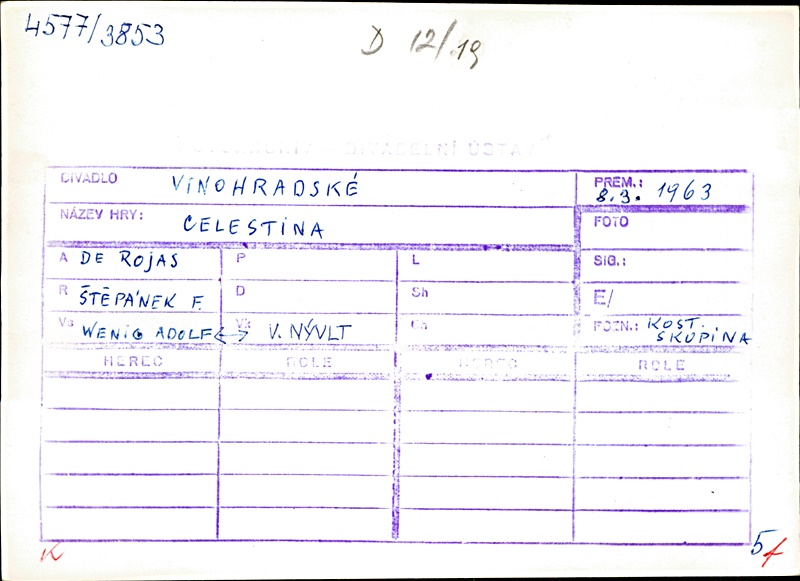 4577/3853
D 12/19
DIVADLO VINOHRADSKÉ PREM.: 8.3. 1963
NÁZEV HRY: CELESTINA FOTO
A DE ROJAS P L SIG.:
R ŠTĚPÁNEK F. D Sh E/
Vs WENIG ADOLF <-> V. NÝVLT POZN.: KOST. SKUPINA
HEREC ROLE HEREC ROLE
K
5